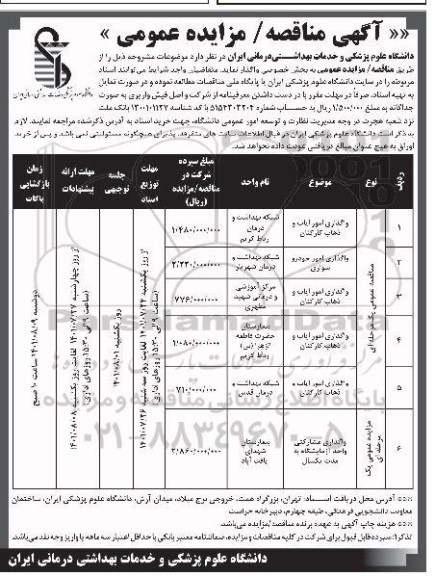 «« آگهی مناقصه/ مزایده عمومی »»
دانشگاه علوم پزشکی و خدمات بهداشتی درمانی ایران در نظر دارد موضوعات مشروحه ذیل را از
طریق مناقصه/ مزایده عمومی به بخش خصوصی واگذار نماید. متقاضیان واجد شرایط می‌توانند اسناد
مربوطه را در سایت دانشگاه علوم پزشکی ایران یا پایگاه ملی مناقصات مطالعه نموده و در صورت تمایل
به تهیه اسناد، صرفاً در مهلت مقرر با در دست داشتن معرفینامه از شرکت و اصل فیش واریزی به صورت
جداگانه به مبلغ ۱/۵۰۰/۰۰۰ ریال به حساب شماره با کد شناسه بانک ملت
نزد شعبه هجرت در وجه مدیریت نظارت و توسعه امور عمومی دانشگاه، جهت خرید اسناد به آدرس ذکرشده مراجعه نمایند. لازم
به ذکر است دانشگاه علوم پزشکی ایران در قبال اطلاعات سایت های متفرقه، پذیرای هیچگونه مسئولیتی نمی باشد و پس از خرید
اوراق به هیچ عنوان مبالغ دریافتی عودت داده نخواهد شد.
ردیف نوع موضوع نام واحد مبلغ سپرده شرکت در مناقصه/مزایده (ریال) مهلت توزیع اسناد جلسه توجیهی مهلت ارائه پیشنهادات زمان بازگشایی پاکات
۱ واگذاری امور ایاب و ذهاب کارکنان شبکه بهداشت و درمان رباط کریم ۱/۴۸۰/۰۰۰/۰۰۰
۲ واگذاری امور خودرو سواری شبکه بهداشت و درمان شهریار ۲/۲۲۰/۰۰۰/۰۰۰
۳ واگذاری امور ایاب و ذهاب کارکنان مرکز آموزشی و درمانی شهید مطهری ۷۷۶/۰۰۰/۰۰۰
۴ واگذاری امور ایاب و ذهاب کارکنان بیمارستان حضرت فاطمه زهرا (س) رباط کریم ۱/۰۸۰/۰۰۰/۰۰۰
۵ واگذاری امور ایاب و ذهاب کارکنان شبکه بهداشت و درمان قدس ۷۱۰/۰۰۰/۰۰۰
۶ واگذاری مشارکتی واحد آزمایشگاه به مدت یکسال بیمارستان شهدای یافت آباد ۳/۸۶۰/۰۰۰/۰۰۰
مناقصه عمومی یک مرحله ای
مزایده عمومی یک مرحله ای
روز یکشنبه ۱۴۰۱/۰۸/۰۱
دوشنبه ۱۴۰۱/۰۸/۰۹ ساعت ۱۰ صبح
ParsNamadData
پایگاه اطلاع رسانی مناقصه و مزایده
۰۲۱-۸۸۳۴۹۶۷۰-۵
آدرس محل دریافت اسناد: تهران، بزرگراه همت، خروجی برج میلاد، میدان آرش، دانشگاه علوم پزشکی ایران، ساختمان
معاونت دانشجویی فرهنگی، طبقه چهارم، دبیرخانه حراست
هزینه چاپ آگهی به عهده برنده مناقصه/مزایده می‌باشد.
تذکر۱: سپرده قابل قبول برای شرکت در کلیه مناقصات و مزایده، ضمانتنامه معتبر بانکی با حداقل اعتبار سه ماهه یا واریز وجه نقد می‌باشد.
دانشگاه علوم پزشکی و خدمات بهداشتی درمانی ایران